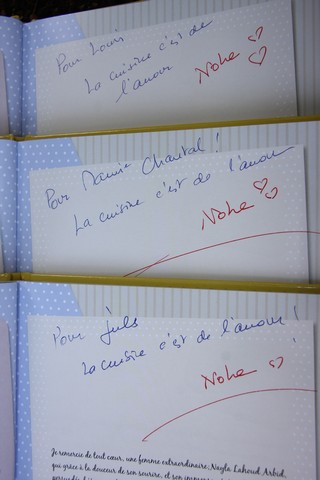 Pour Louis
La cuisine c'est de
l'amour
Noha
Pour Mamie Chantal !
La cuisine c'est de l'amour
Noha
Pour Juls
La cuisine c'est de l'amour !
Noha
Je remercie de tout cœur, une femme extraordinaire, Nayla Lahoud Arbid,
qui grâce à la douceur de son sourire, et son